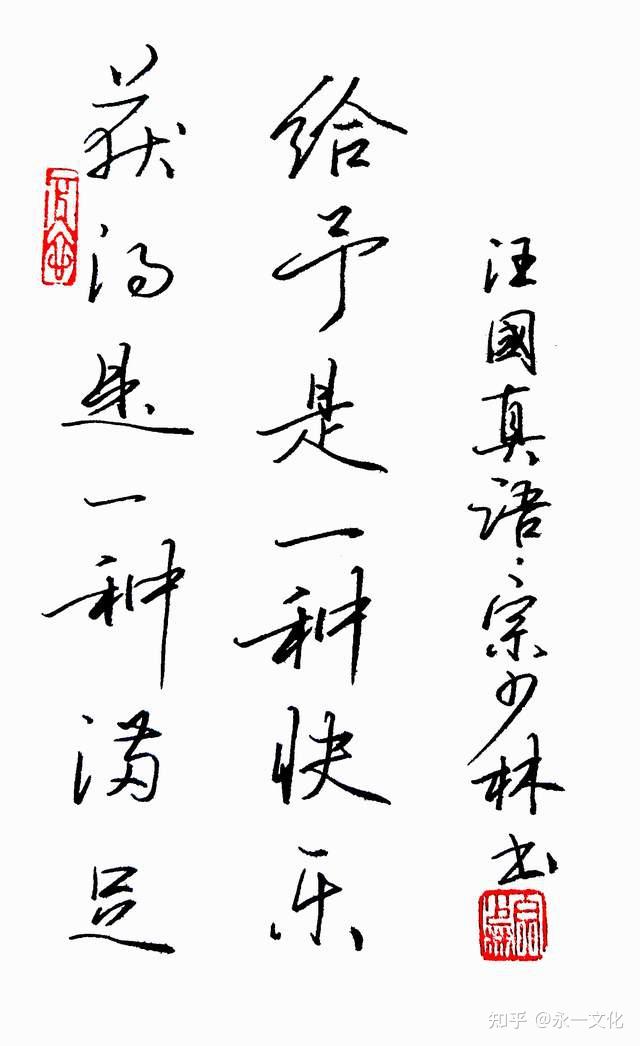 获得是一种满足
给予是一种快乐
汪國真语宗少林书
知乎 @永一文化